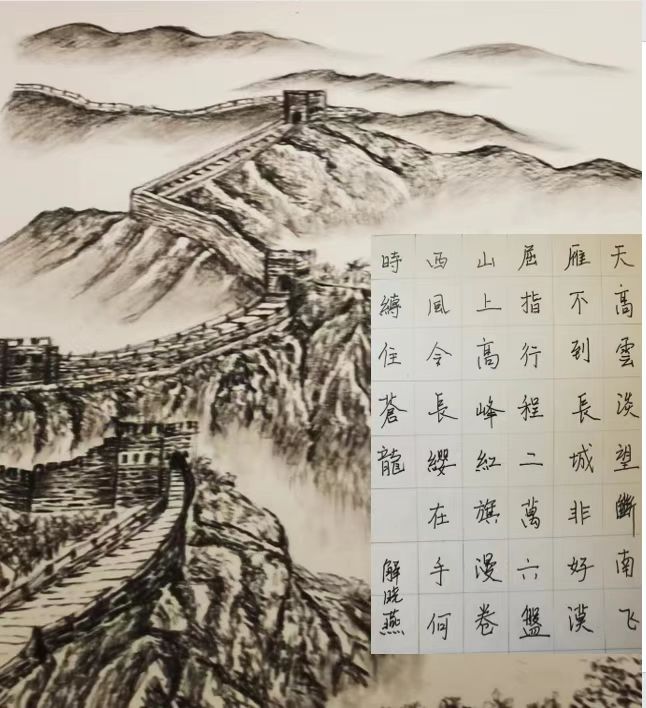 天高雲淡望斷南飞
雁不到長城非好漢
屈指行程二萬六盤
山上高峰紅旗漫卷
西風今長纓在手何
時縛住蒼龍
解晓燕